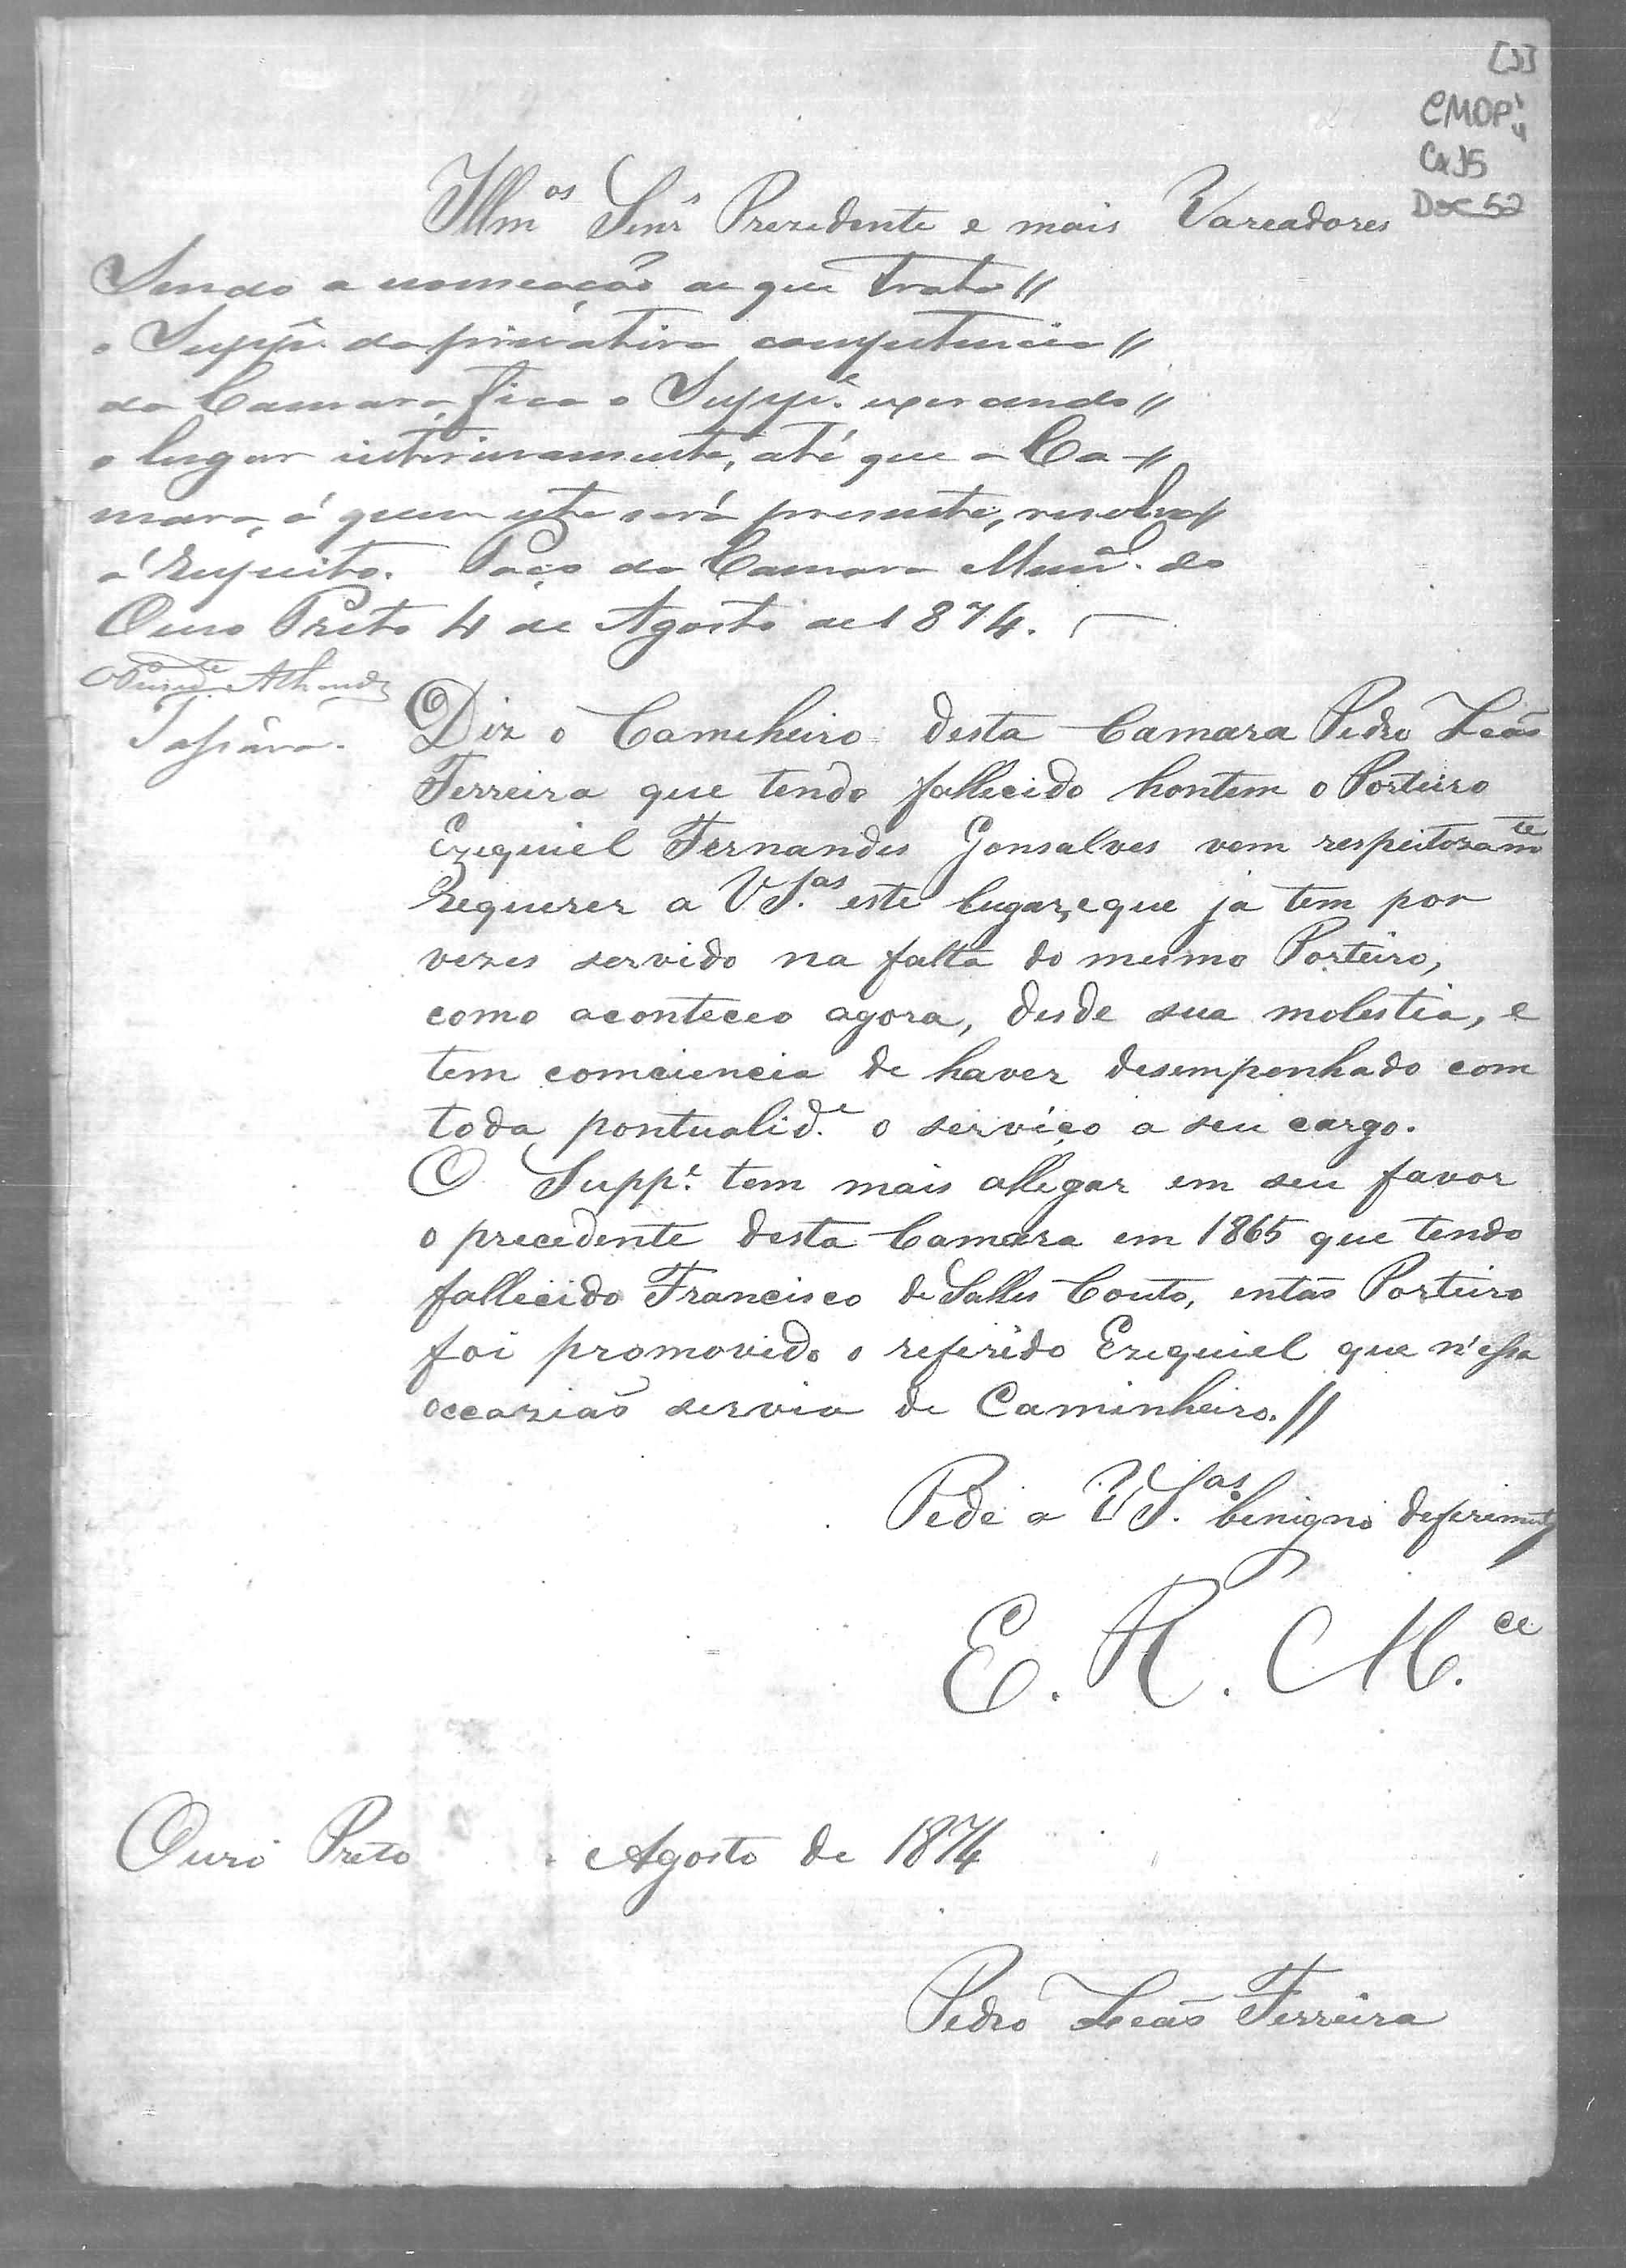 [1]
CMOP
Cx 15
Doc 52
Illm.os Senr.s Prezidente e mais Vareadores
Sendo a nomeação de que trata //
o Supp.e da privativa competencia //
da Camara, fica o Supp.e exercendo //
o lugar interinamente, até que a Ca- //
mara, á quem esta será presente, resolva //
a respeito. Paço da Camara Mun.al do
Ouro Preto 4 de Agosto de 1874.
Diz o Camcheiro desta Camara Pedro Leão
Ferreira que tendo fallecido hontem o Porteiro
Ezequiel Fernandes Gonsalves vem respeitozam.te
requerer a VS.as este lugar, e que já tem por
vezes servido na falta do mesmo Porteiro,
como aconteceo agora, desde sua molestia, e
tem comciencia de haver desempenhado com
toda pontualid.e o serviço a seu cargo.
O Supp.e tem mais allegar em seu favor
o precedente desta Camara em 1865 que tendo
fallecido Francisco de Salles Couto, então Porteiro
foi promovido o referido Ezequiel que n'essa
occazião servia de Caminheiro. //
Pede a VS.as benigno deferimento
E. R. M.ce
Ouro Preto Agosto de 1874
Pedro Leão Ferreira